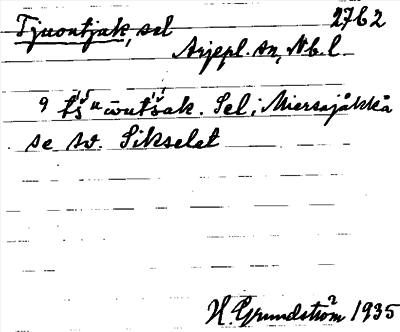 Tjuontjak, sel 27b2
Arjepl. sn, Nb. l.
Sel i Miersajåkkå
se sv. Sikselet
H. Grundström 1935